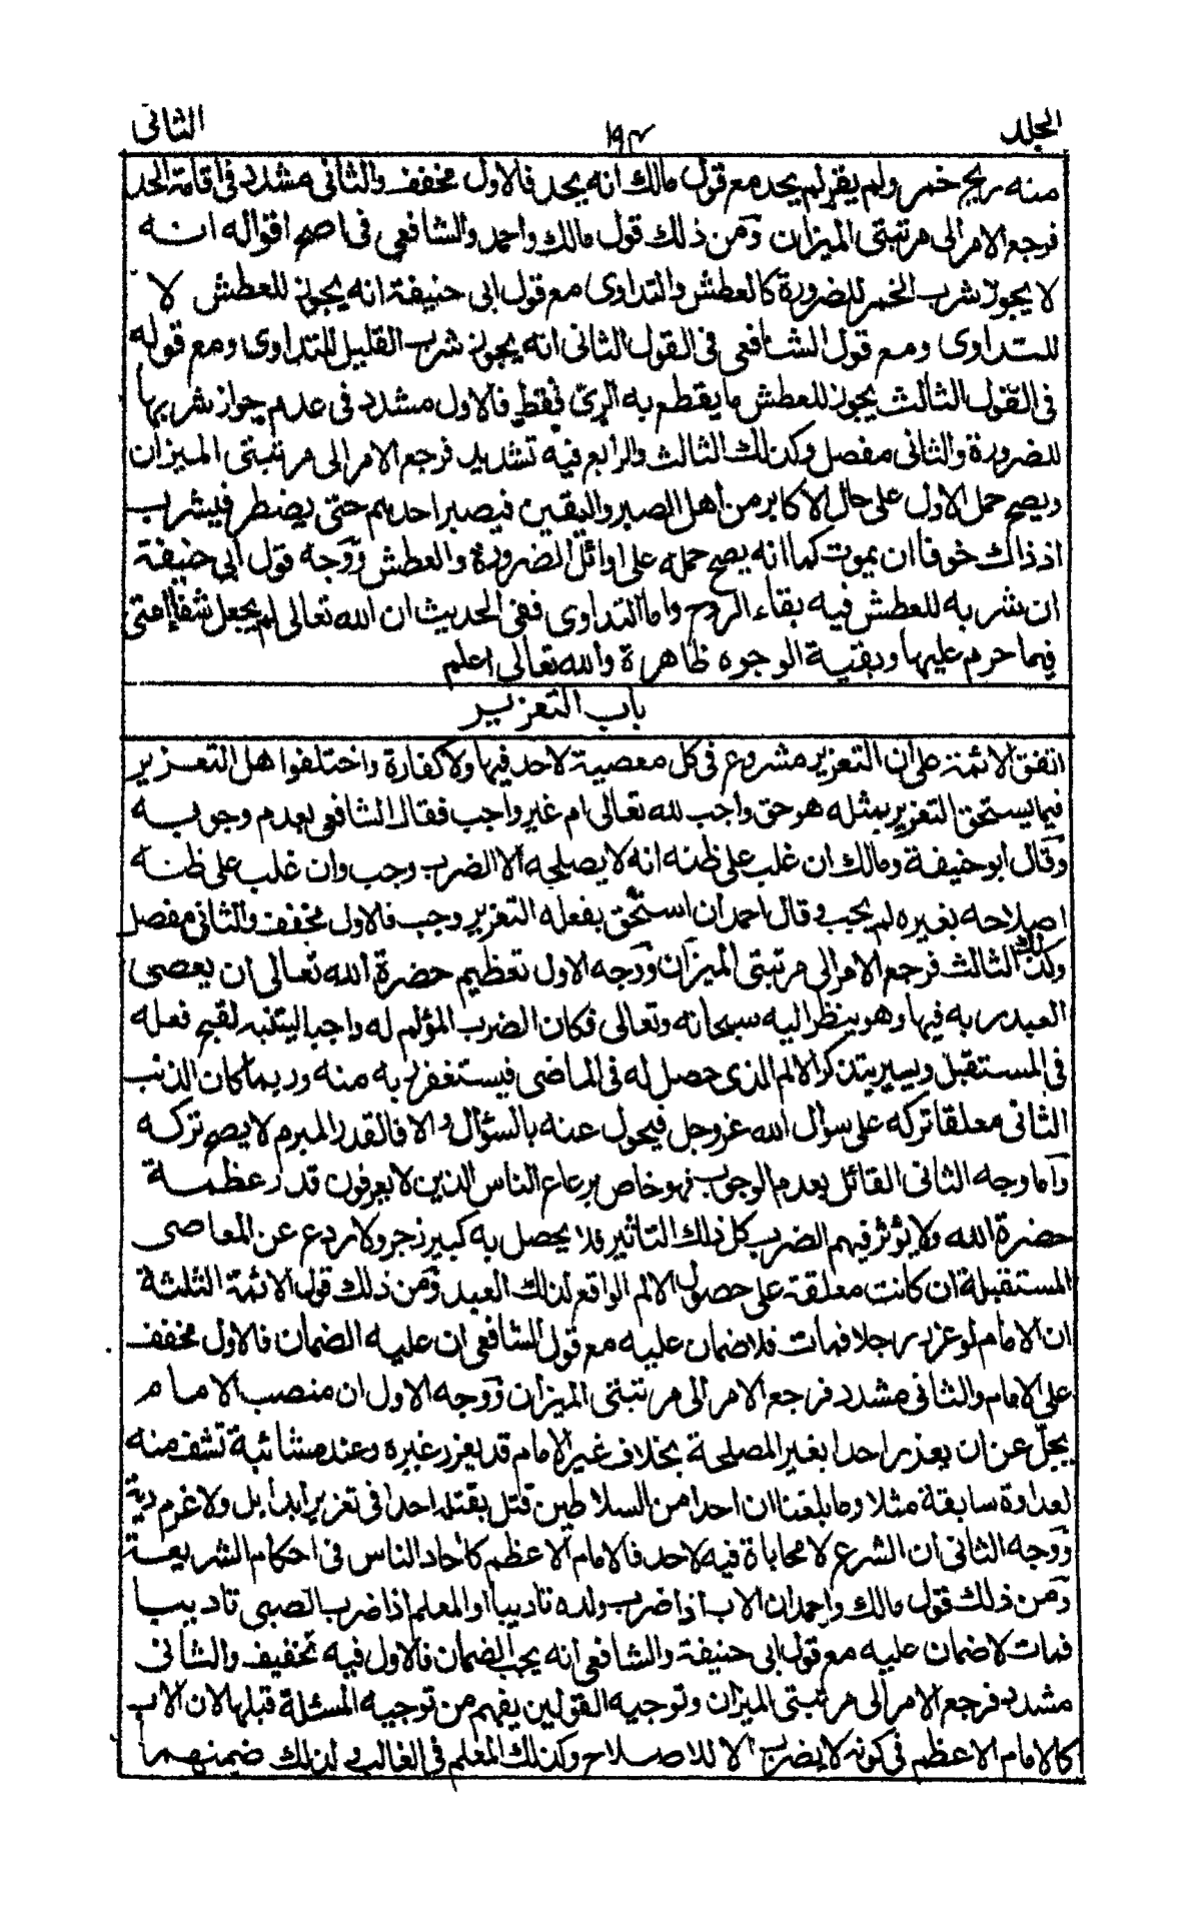 المجلد ١٩٣ الثانى
منه ريح خمر ولم يقر لم يحد مع قول مالك انه يحد فالاول مخفف والثانى مشدد فى اقامة الحد
فرجع الامر الى مرتبتى الميزان ومن ذلك قول مالك واحمد والشافعى فى اصح اقواله انه
لا يجوز شرب الخمر للضرورة كالعطش والتداوى مع قول ابى حنيفة انه يجوز للعطش لا
للتداوى ومع قول الشافعى فى القول الثانى انه يجوز شرب القليل للتداوى ومع قوله
فى القول الثالث يجوز للعطش ما يقطع به الرىّ فقط فالاول مشدد فى عدم جواز شربها
للضرورة والثانى مفصل وكذلك الثالث والرابع فيه تشديد فرجع الامر الى مرتبتى الميزان
ويصح حمل الاول على حال الاكابر من اهل الصبر واليقين فيصبر احدهم حتى يضطر فيشرب
اذ ذاك خوفا ان يموت كما انه يصح حمله على اوائل الضرورة والعطش ووجه قول ابى حنيفة
ان شربه للعطش فيه بقاء الروح واما التداوى ففى الحديث ان الله تعالى لم يجعل شفاء امتى
فيما حرم عليها وبقية الوجوه ظاهرة والله تعالى اعلم
باب التعزير
اتفق الائمة على ان التعزير مشروع فى كل معصية لاحد فيها ولا كفارة واختلفوا هل التعزير
فيما يستحق التعزير بمثله هو حق واجب لله تعالى ام غير واجب فقال الشافعى بعدم وجوبه
وقال ابو حنيفة ومالك ان غلب على ظنه انه لا يصلحه الا الضرب وجب وان غلب على ظنه
اصلاحه بغيره لم يجب وقال احمد ان استحق بفعله التعزير وجب فالاول مخفف والثانى مفصل
وكذلك الثالث فرجع الامر الى مرتبتى الميزان ووجه الاول تعظيم حضرة الله تعالى ان يعصى
العبد ربه فيها وهو ينظر اليه سبحانه وتعالى فكان الضرب المؤلم له واجبا ليتنبه لقبح فعله
فى المستقبل ويسير يتذكر الالم الذى حصل له فى الماضى فيستغفر ربه منه وربما كان الذنب
الثانى معلقا تركه على سوال الله عزوجل فيحول عنه بالسؤال والا فالقدر المبرم لا يصح تركه
واما وجه الثانى القائل بعدم الوجوب فهو خاص برعاع الناس الذين لا يعرفون قدر عظمة
حضرة الله ولا يؤثر فيهم الضرب كل ذلك التاثير فلا يحصل به كبير زجر ولا ردع عن المعاصى
المستقبلة ان كانت معلقة على حصول الالم الواقع لذلك العبد ومن ذلك قول الائمة الثلثة
ان الامام لو عزر رجلا فمات فلا ضمان عليه مع قول الشافعى ان عليه الضمان فالاول مخفف
على الامام والثانى مشدد فرجع الامر الى مرتبتى الميزان ووجه الاول ان منصب الامام
يجلّ عن ان يعذر احدا بغير المصلحة بخلاف غير الامام قد يعزر غيره وعنده شائبة تشف منه
لعداوة سابقة مثلا وما بلغنا ان احدا من السلاطين قتل بقتله احدا فى تعزير ابدا بل ولا غرم دية
ووجه الثانى ان الشرع لا محاباة فيه لاحد فالامام الاعظم كآحاد الناس فى احكام الشريعة
ومن ذلك قول مالك واحمد ان الاب اذا ضرب ولده تاديبا او المعلم اذا ضرب الصبى تاديبا
فمات لا ضمان عليه مع قول ابى حنيفة والشافعى انه يجب الضمان فالاول فيه تخفيف والثانى
مشدد فرجع الامر الى مرتبتى الميزان وتوجيه القولين يفهم من توجيه المسئلة قبلها لان الاب
كالامام الاعظم فى كونه لا يضرب الا للاصلاح وكذلك المعلم فى الغالب ولذلك ضمنهما